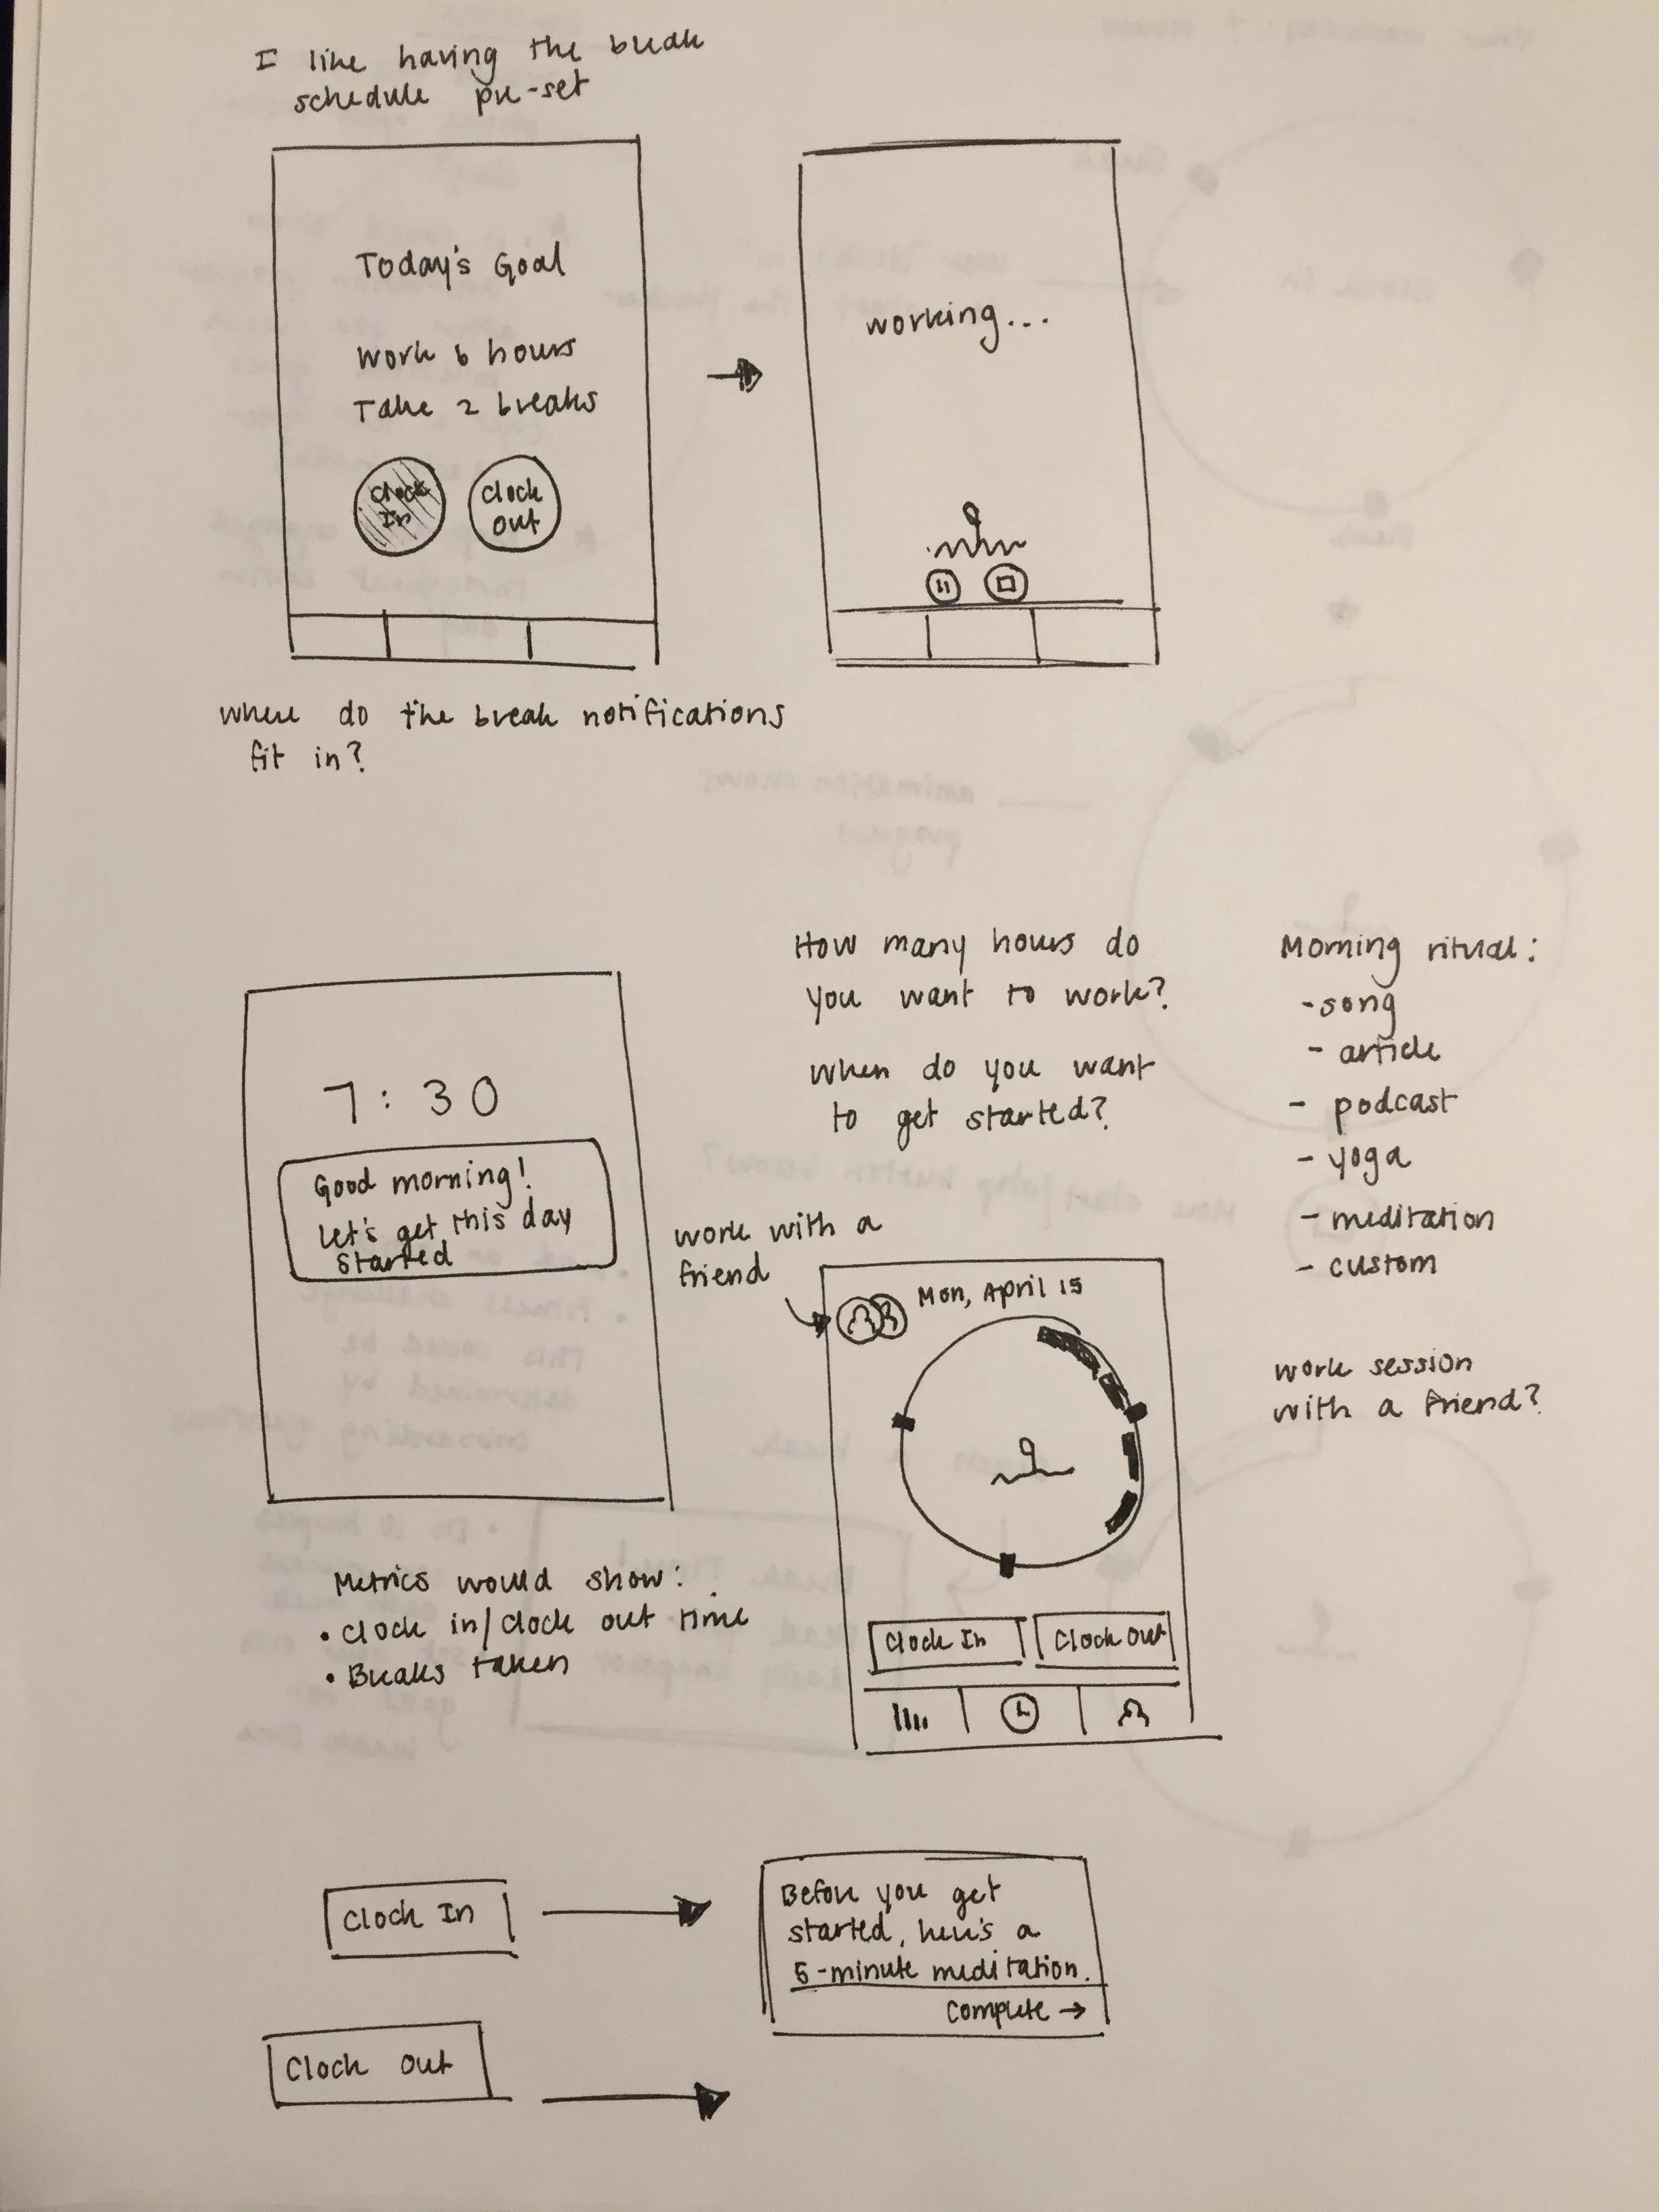 I like having the break
schedule pre-set
Today's Goal
Work 6 hours
Take 2 breaks
Clock
In
Clock
Out
working...
where do the break notifications
fit in?
7:30
Good morning!
Let's get this day
started
How many hours do
you want to work?
when do you want
to get started?
Morning ritual:
- song
- article
- podcast
- yoga
- meditation
- custom
work with a
friend
Mon, April 15
Clock In
Clock Out
work session
with a friend?
Metrics would show:
• clock in/clock out time
• Breaks taken
Clock In
Before you get
started, here's a
5-minute meditation.
Complete →
Clock Out